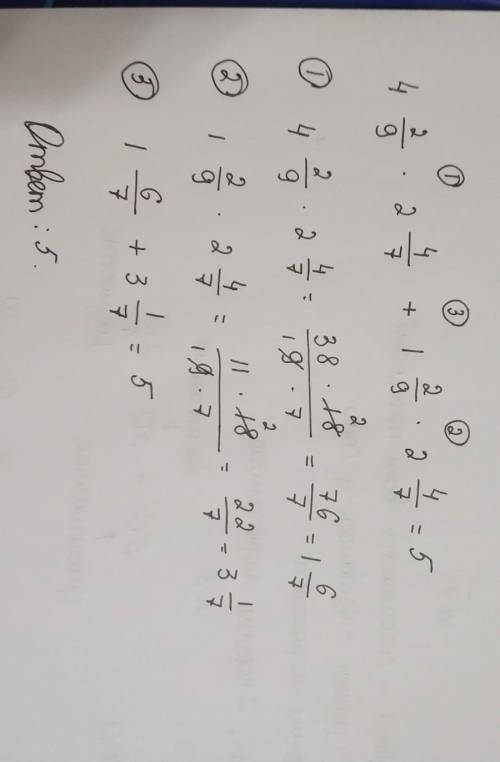 4 2/9 · 2 4/7 + 1 2/9 · 2 4/7 = 5
① ③ ②
① 4 2/9 · 2 4/7 = 38 · 18 2 / 1 9 · 7 = 76/7 = 1 6/7
② 1 2/9 · 2 4/7 = 11 · 18 2 / 1 9 · 7 = 22/7 = 3 1/7
③ 1 6/7 + 3 1/7 = 5
Ответ: 5.